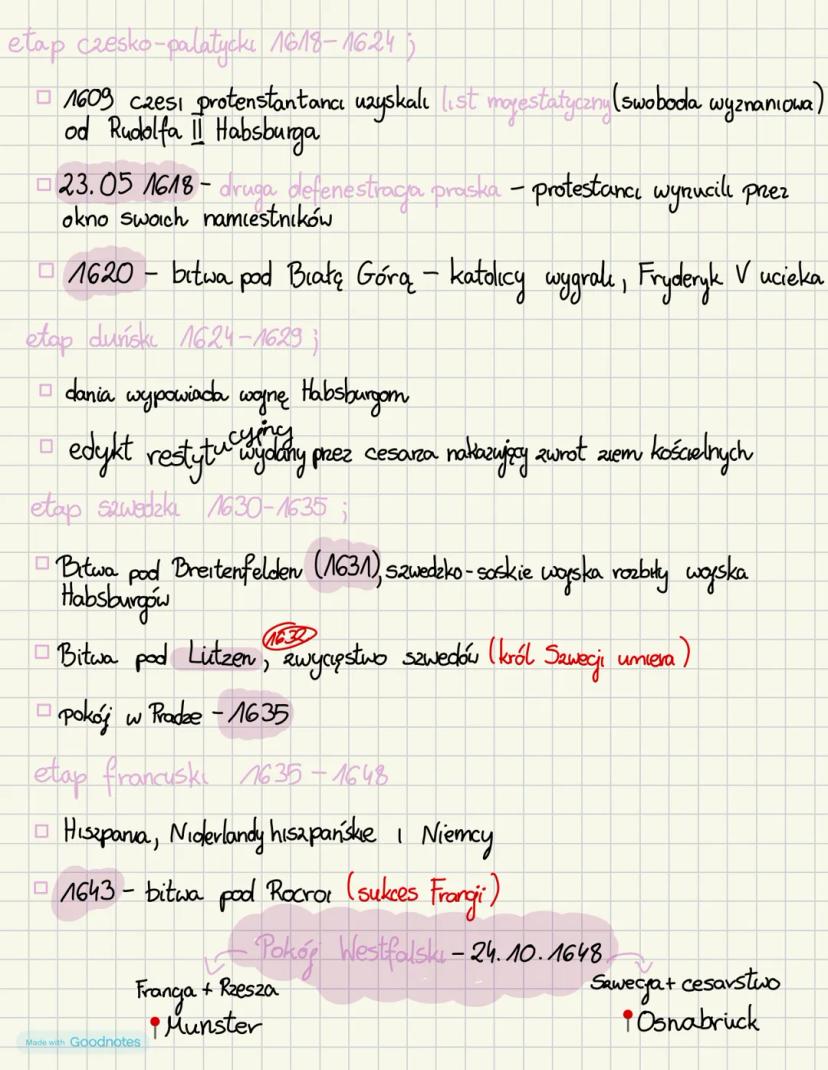 etap czesko-palatycki 1618-1624 ;
1609 czesi protenstantanci uzyskali list majestatyczny (swoboda wyznaniowa)
od Rudolfa II Habsburga
23.05 1618 - druga defenestracja praska - protestanci wyrzucili przez
okno swoich namiestników
1620 - bitwa pod Białę Górą - katolicy wygrali, Fryderyk V ucieka
etap duński 1624-1629 ;
dania wypowiada wojnę Habsburgom
edykt restytucyjny wydany przez cesarza nakazujący zwrot ziem kościelnych
etap szwedzki 1630-1635 ;
Bitwa pod Breitenfelden (1631), szwedzko-saskie wojska rozbiły wojska
Habsburgów
Bitwa pod Lützen, 1632 zwycięstwo szwedów (król Szwecji umiera)
pokój w Pradze - 1635
etap francuski 1635 - 1648
Hiszpania, Niderlandy hiszpańskie i Niemcy
1643 - bitwa pod Rocroi (sukces Francji)
Pokój Westfalski - 24.10.1648
Francja + Rzesza
Szwecja + cesarstwo
Munster
Osnabruck
Made with Goodnotes